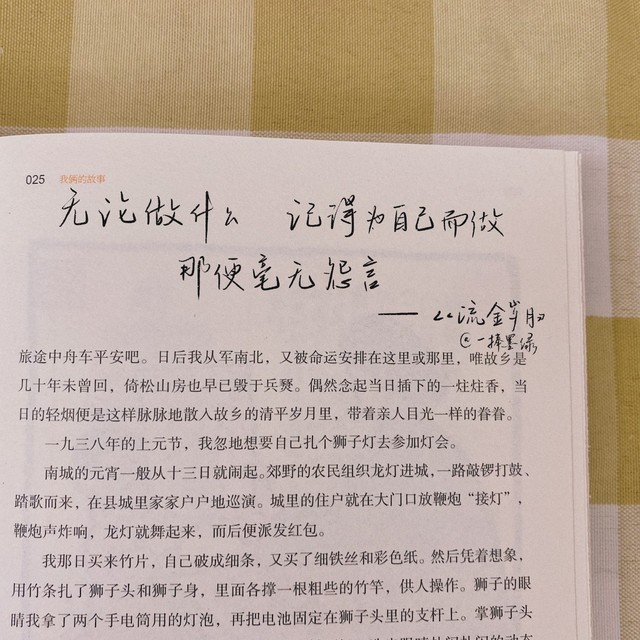 025 我俩的故事
无论做什么 记得为自己而做
那便毫无怨言
——《流金岁月》
@一捧墨绿
旅途中舟车平安吧。日后我从军南北，又被命运安排在这里或那里，唯故乡是
几十年未曾回，倚松山房也早已毁于兵燹。偶然念起当日插下的一炷炷香，当
日的轻烟便是这样脉脉地散入故乡的清平岁月里，带着亲人目光一样的眷眷。
一九三八年的上元节，我忽地想要自己扎个狮子灯去参加灯会。
南城的元宵一般从十三日就闹起。郊野的农民组织龙灯进城，一路敲锣打鼓、
踏歌而来，在县城里家家户户地巡演。城里的住户就在大门口放鞭炮“接灯”，
鞭炮声炸响，龙灯就舞起来，而后便派发红包。
我那日买来竹片，自己破成细条，又买了细铁丝和彩色纸。然后凭着想象，
用竹条扎了狮子头和狮子身，里面各撑一根粗些的竹竿，供人操作。狮子的眼
睛我拿了两个手电筒用的灯泡，再把电池固定在狮子头里的支杆上。掌狮子头